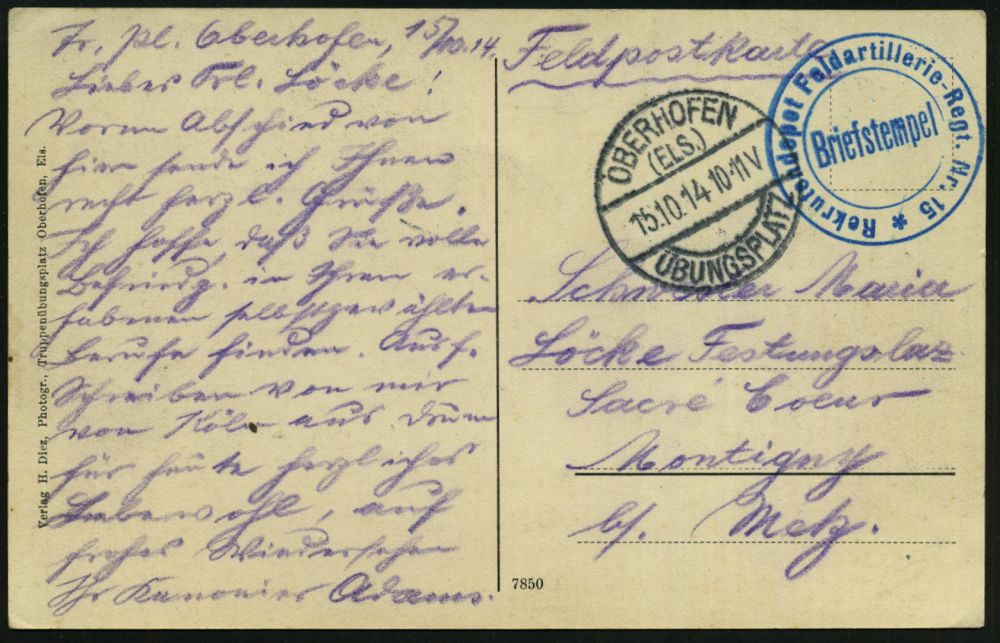 Tr. Pl. Oberhofen, 15/10.14.
Liebes Frl. Löcke!
Vorm Abschied von
hier sende ich Ihnen
recht herzl. Grüße.
Ich hoffe, daß Sie volle
Befriedg. in Ihrem er-
habenen selbstgewählten
Berufe finden. Ausf.
Schreiben von mir
von Köln aus. Drum
für heute herzliches
Lebewohl, auf
frohes Wiedersehen
Ihr Kanonier Adams.
Verlag H. Diez, Photogr., Truppenübungsplatz Oberhofen, Els.
Feldpostkarte
OBERHOFEN
(ELS.)
15.10.14 10-11V
ÜBUNGSPLATZ
Rekrutendepot Feldartillerie-Regt. Nr. 15 *
Briefstempel
Schwester Maria
Löcke Festungslaz.
Sacré Coeur
Montigny
b/ Metz.
7850